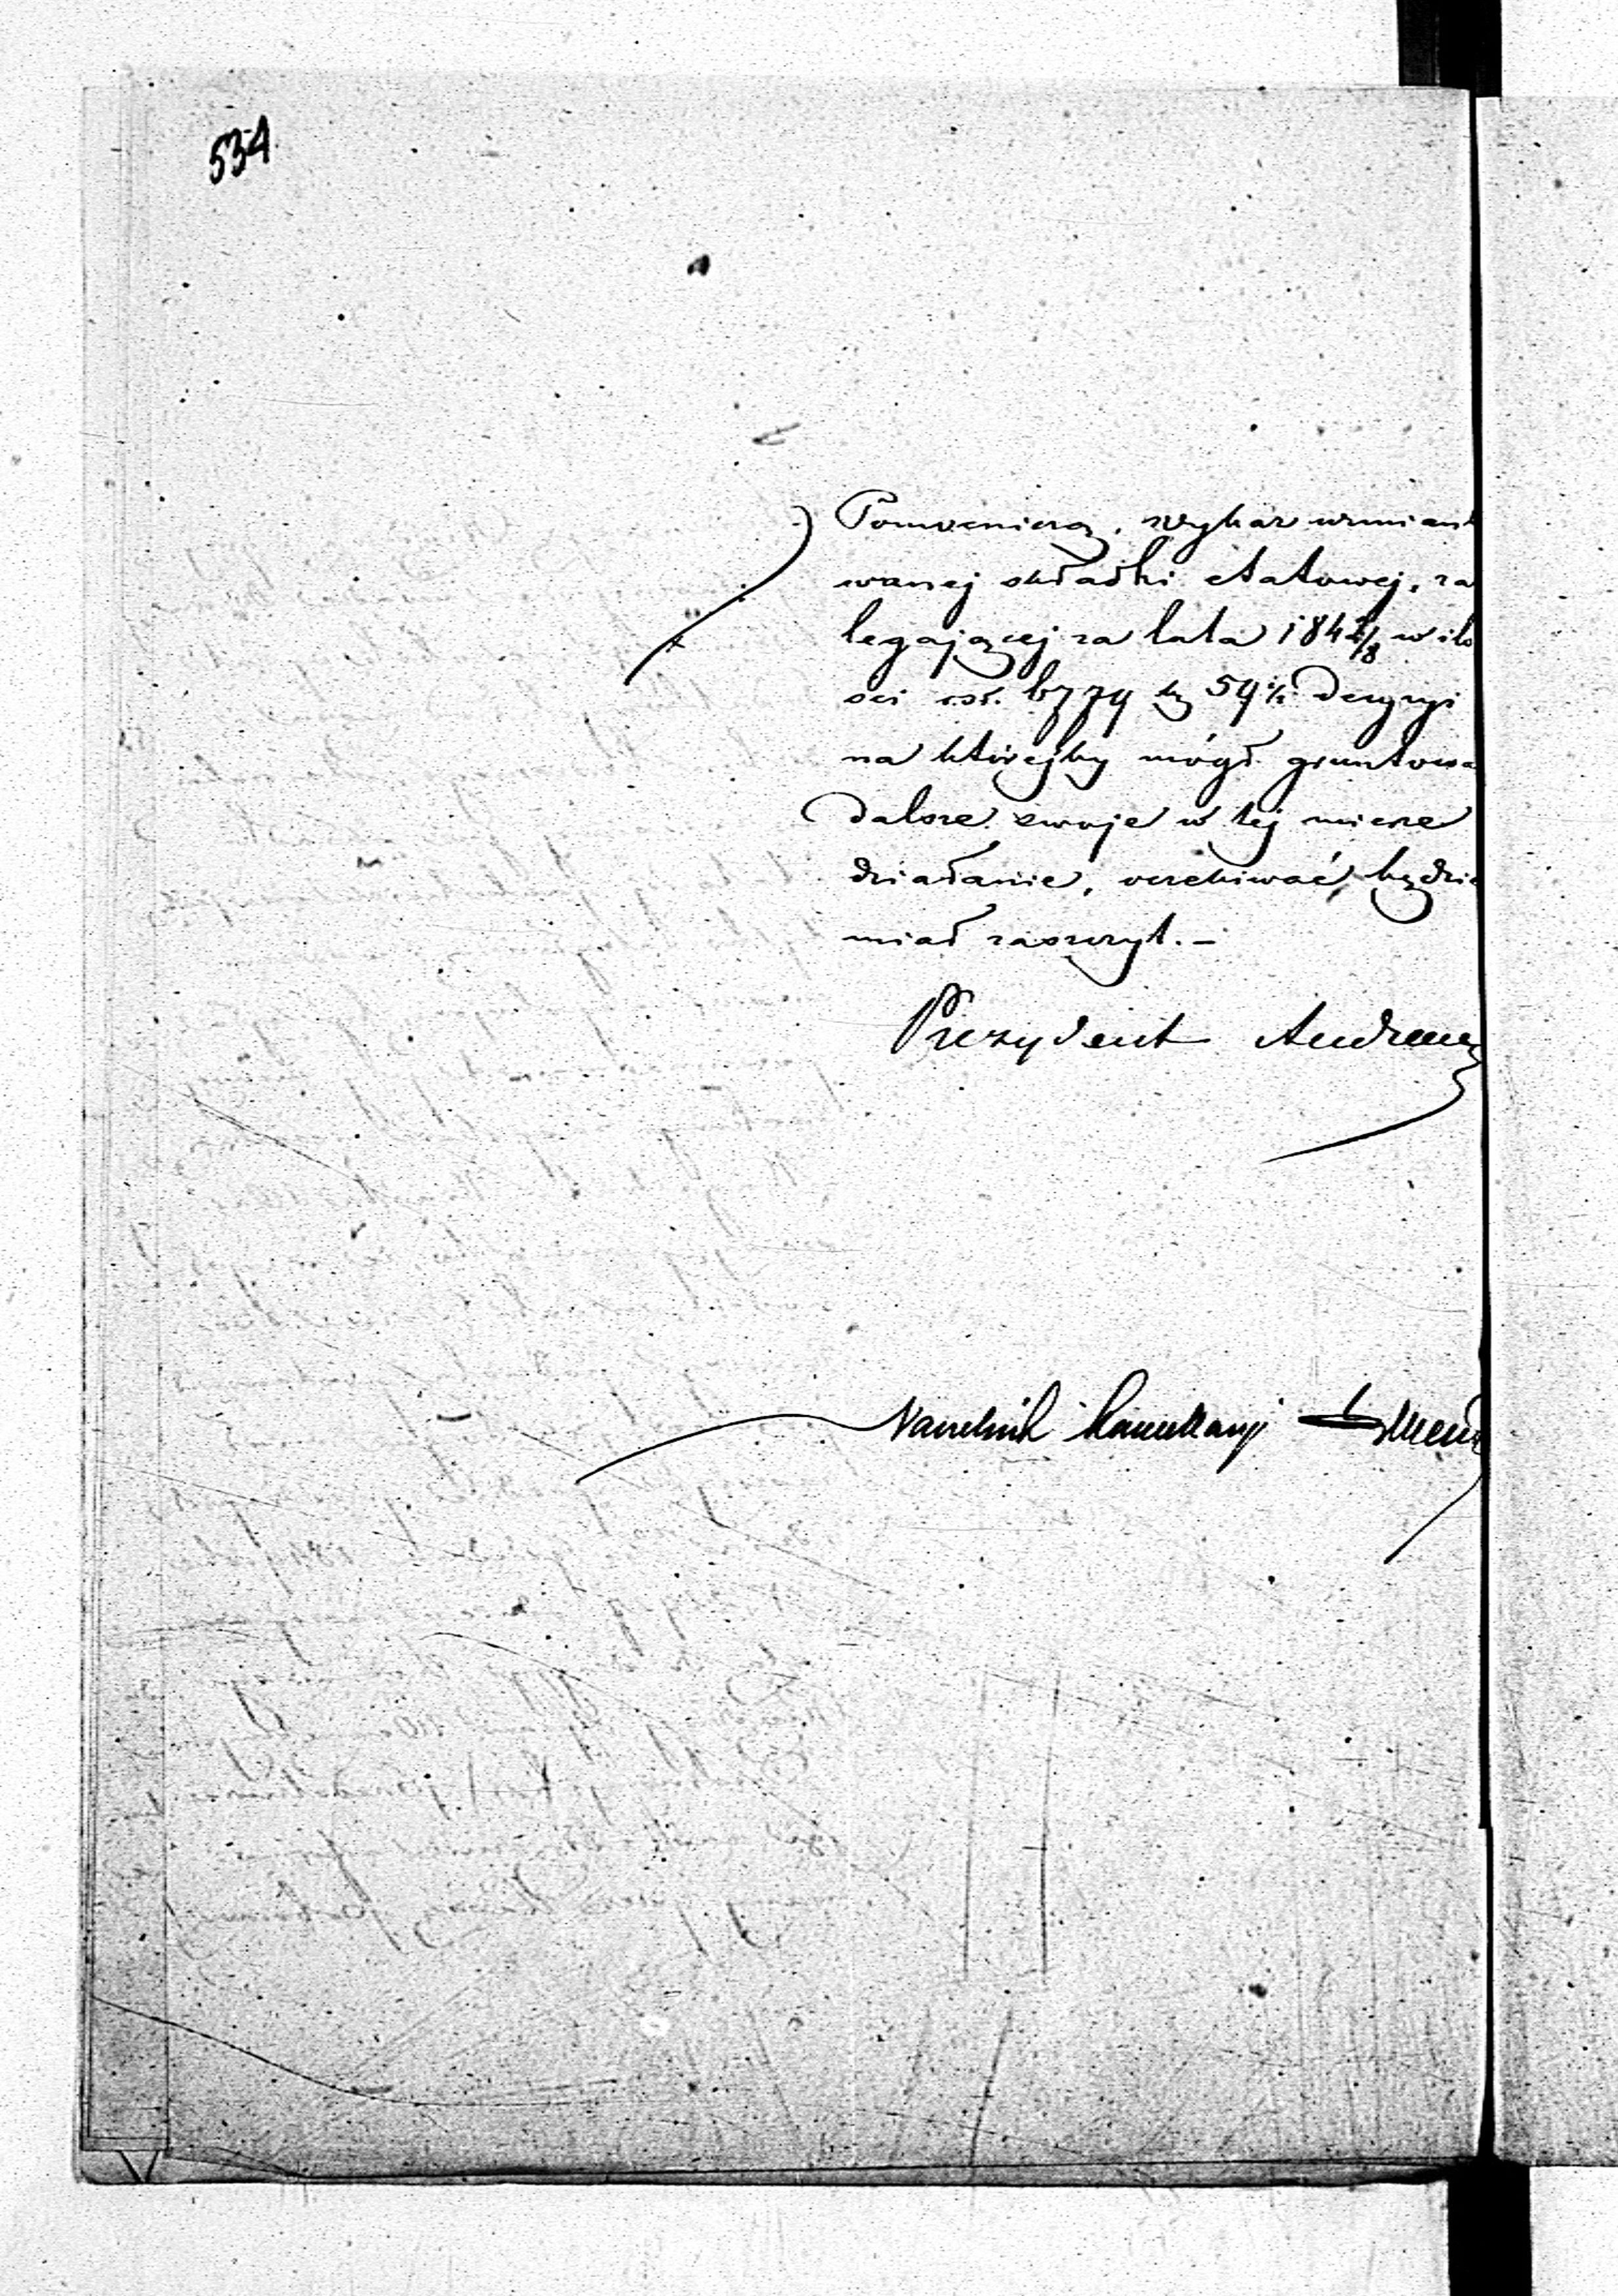 534
Pomienioną, wykaz wzmiank
wanej składki etatowej, za
legającej za lata 184 7/8 w ilo
ści rsr. 6779 k 59 1/2 decyzyi
na którejby mógł gruntowa
dalsze swoje w tej mierze
działanie, oczekiwać będzie
miał zaszczyt. –
Prezydent
Naczelnik Kancellaryi